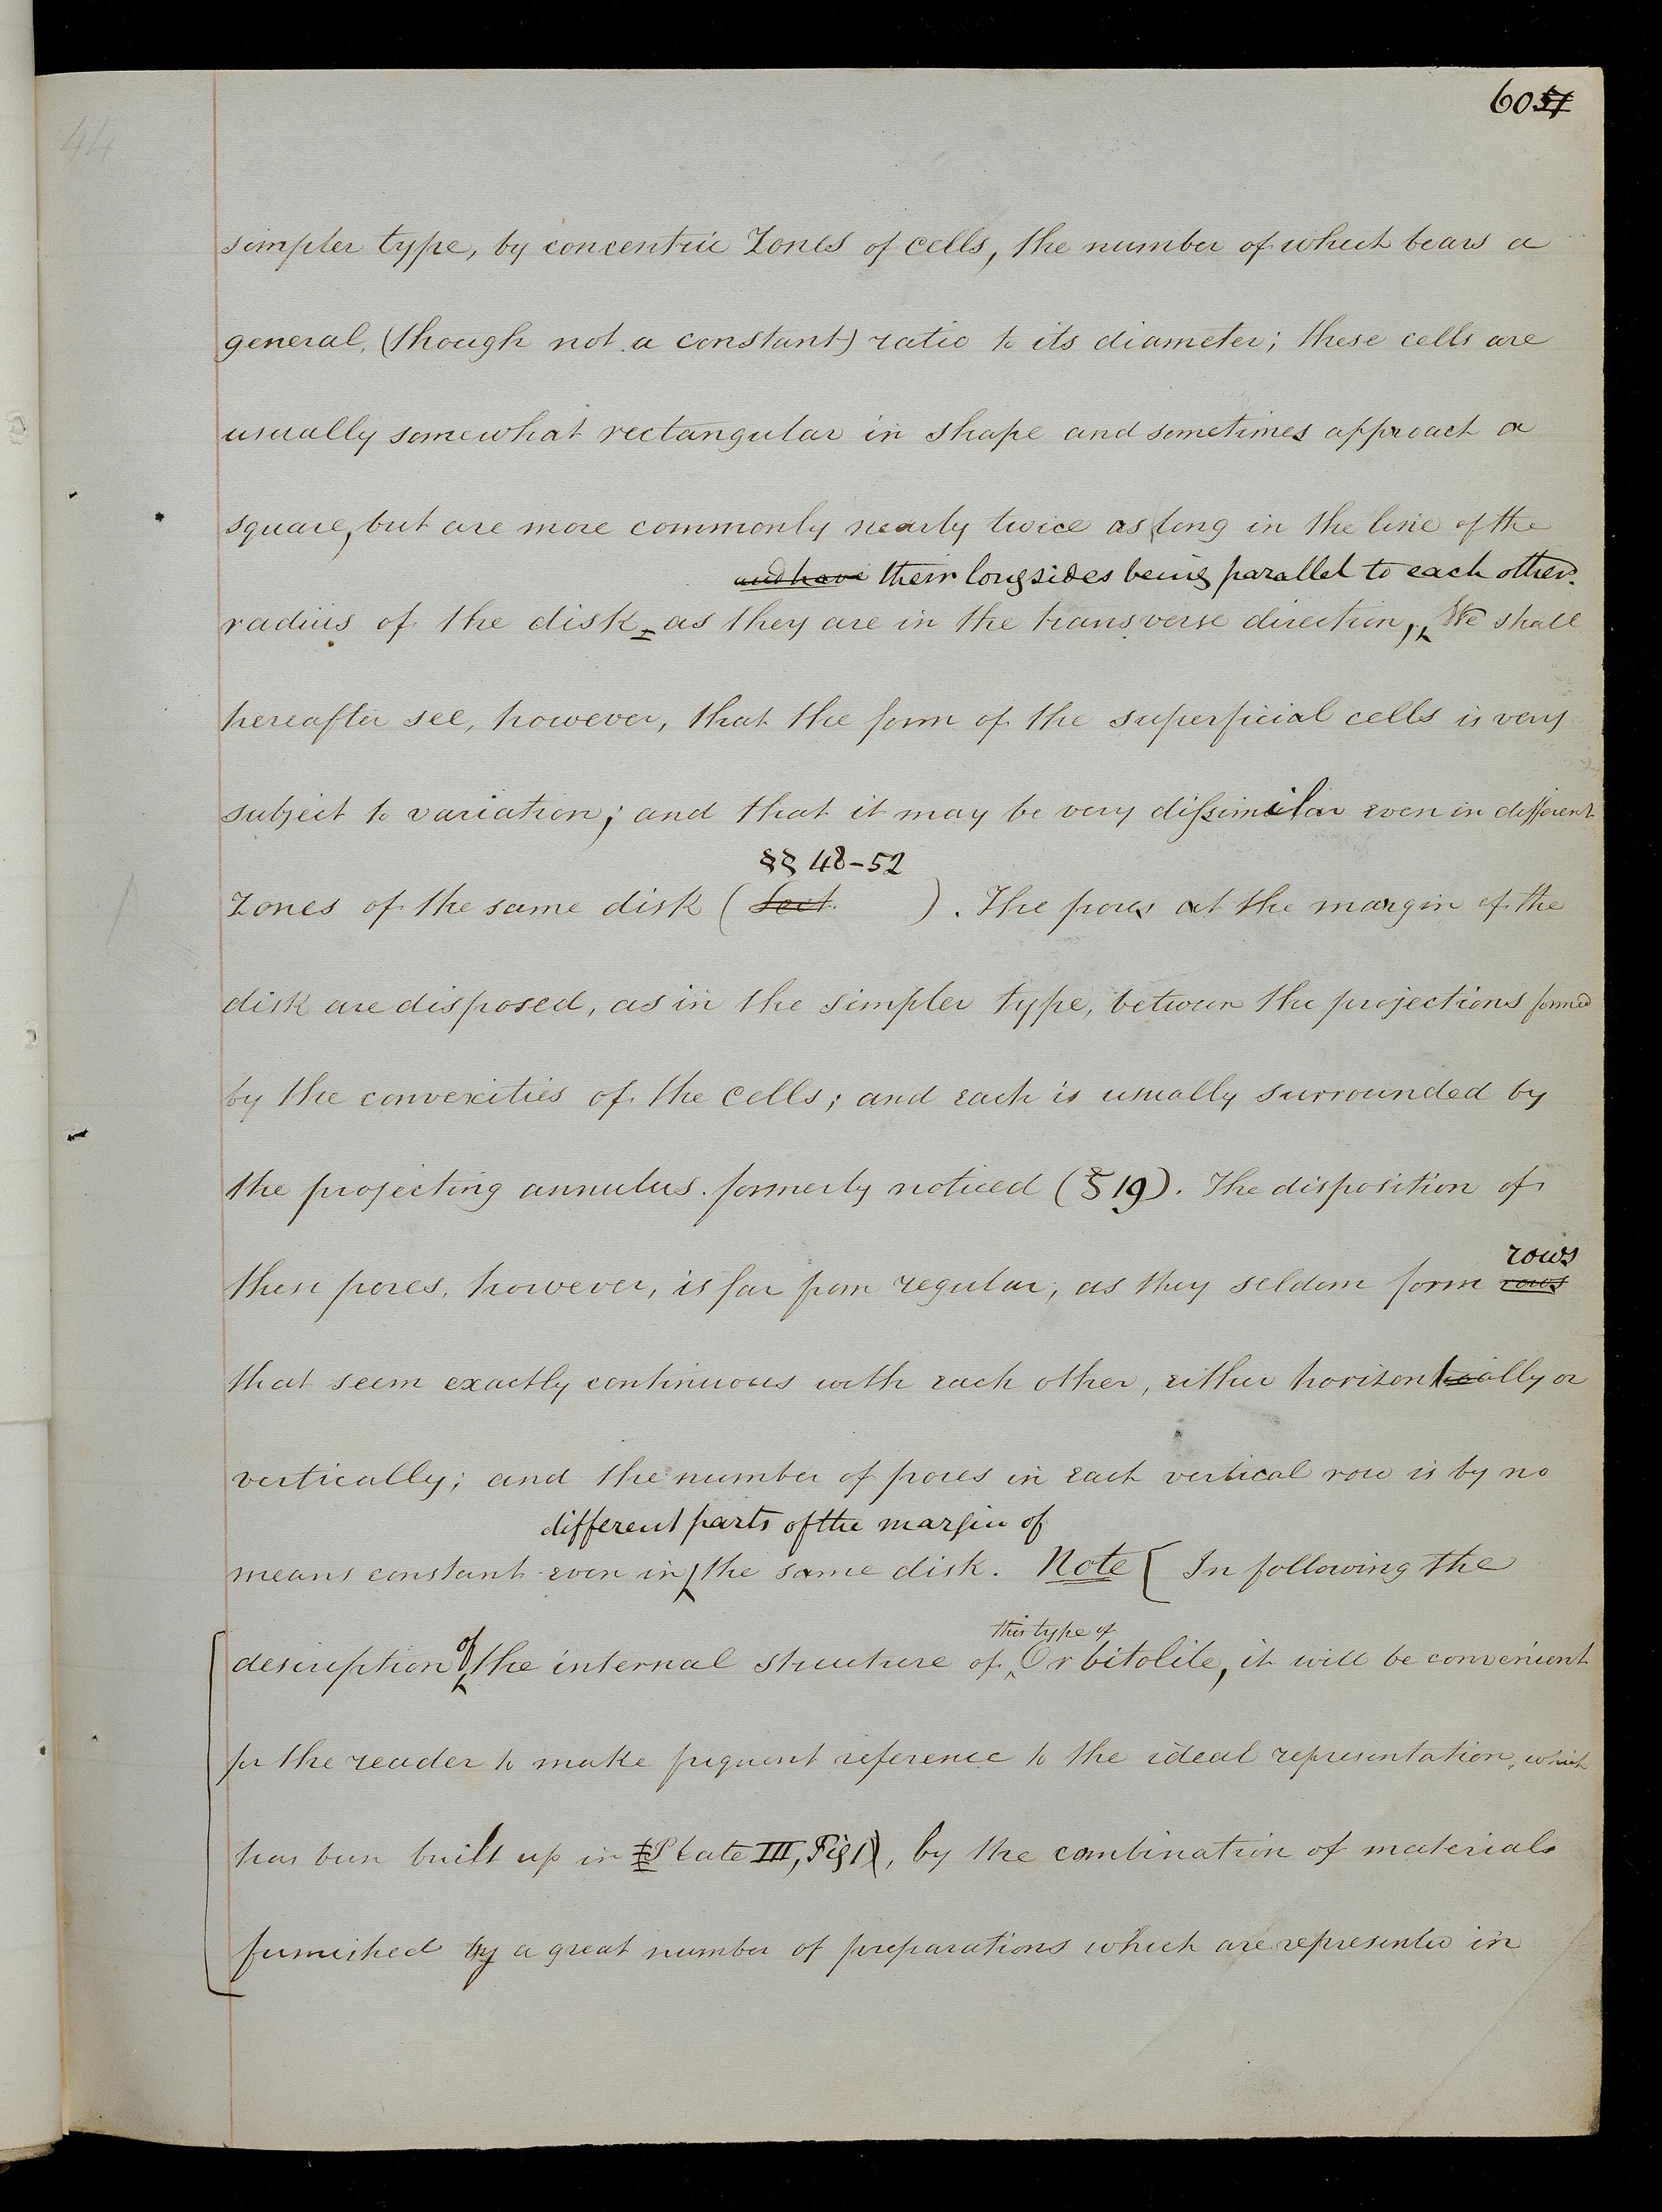 60 51
44
simpler type, by concentric zones of cells, the number of which bears a
general (though not a constant) ratio to its diameter; these cells are
usually somewhat rectangular in shape and sometimes approach a
square, but are more commonly nearly twice as long in the line of the
and have their long sides being parallel to each other.
radius of the disk as they are in the transverse direction, We shall
hereafter see, however, that the form of the superficial cells is very
subject to variation; and that it may be very dissimilar even in different
§§ 48-52
zones of the same disk ( Sect. ). The pores at the margin of the
disk are disposed, as in the simpler type, between the projections formed
by the convexities of the cells; and each is usually surrounded by
the projecting annulus formerly noticed (§ 19). The disposition of
rows
these pores, however, is far from regular, as they seldom form rows
that seem exactly continuous with each other, either horizontally or
vertically; and the number of pores in each vertical row is by no
different parts of the margin of
means constant even in the same disk. Note [ In following the
this type of
description of the internal structure of Orbitolite, it will be convenient
for the reader to make frequent reference to the ideal representation, which
has been built up in Plate III, Fig 1), by the combination of materials
furnished by a great number of preparations which are represented in